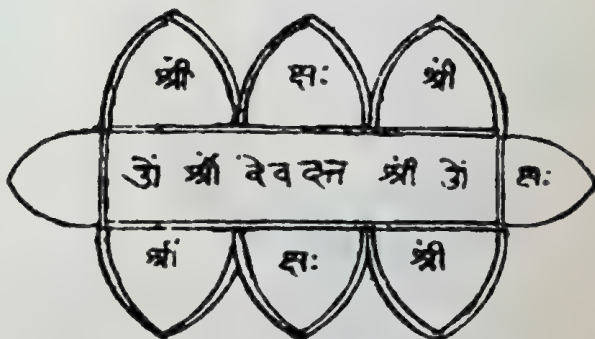 श्रीं क्षः श्रीं
ॐ श्रीं देवदत्त श्रीं ॐ क्षः
श्रीं क्षः श्रीं